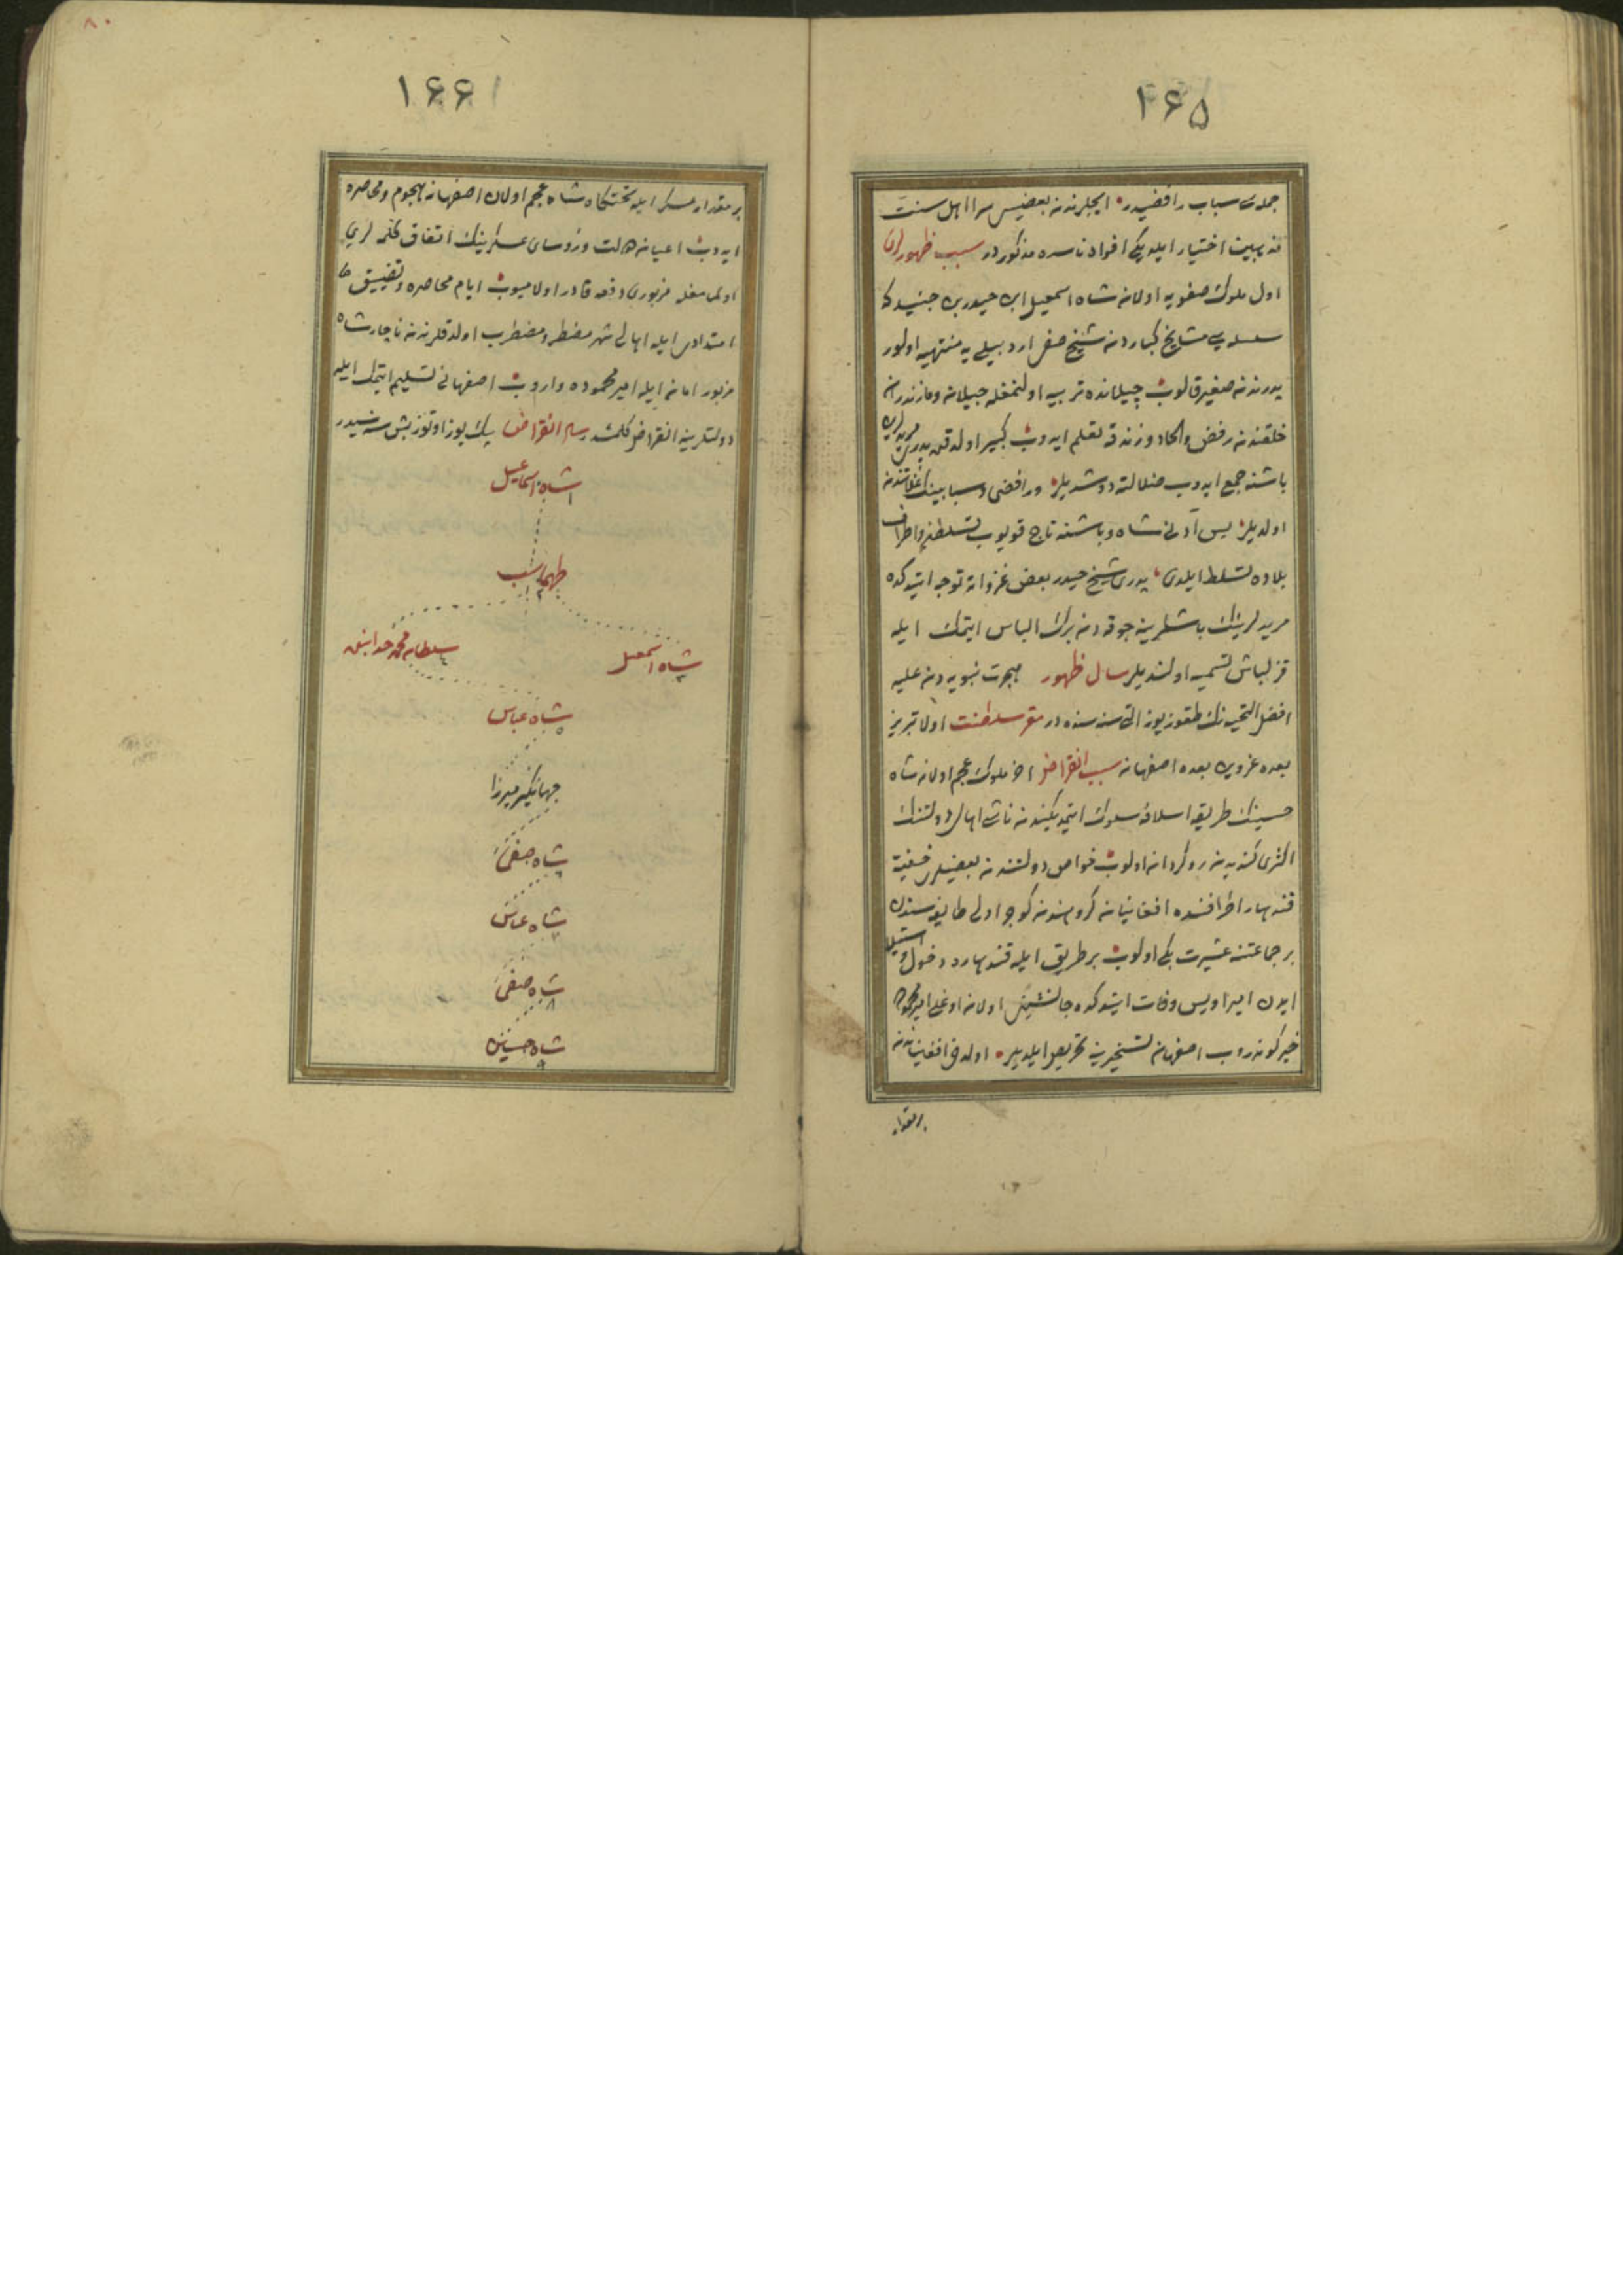 ١٦٥
جمله‌سی سباب رافضیدر ایچلرندن بعضیسی سرا اهل سنت
مذهبین اختیار ایلدیکی افواه ناسده مذکوردر سبب ظهورلری
اول ملوك صفویه اولان شاه اسمعیل ابن حیدر بن جنید که
سلسله‌سی مشایخ کباردن شیخ صفی اردبیلی یه منتهیه اولور
پدرندن صغیر قالوب جیلانده تربیه اولنمغله جیلان و مازندران
خلقندن رفض والحاد وزندقه تعلم ایدوب کبیر اولدقده پدری مریدلری
باشنه جمع ایدوب ضلالته دوشدیلر ورافضی وسبابینك غلاتندن
اولدیلر پس آدنی شاه وباشنه تاج قویوب تسلطن واطراف
بلاده تسلط ایلدی پدری شیخ حیدر بعض غزواته توجه ایتدکده
مریدلرینك باشلرینه چوقه دن برك الباس ایتمك ایله
قزلباش تسمیه اولندیلر سال ظهور هجرت نبویه دن علیه
افضل التحیه نك طقوز یوز التی سنه سنده در مقر سلطنت اولا تبریز
بعده غزوین بعده اصفهان سبب انقراض اخر ملوك عجم اولان شاه
حسینك طریقه اسلافه سلوك ایتمدیکیندن ناشی اهالی دولتنك
اکثری کندیدن روکردان اولوب خواص دولتندن بعضیلر خفیة
قندهار اطرافنده افغانیان کروهندن کوجر اولی طایفه سندن
بر جماعتنه عشیرت بکی اولوب بر طریق ایله قندهاره دخول واستیلا
ایدن امیر اویس وفات ایتدکده جانشینی اولان اوغلی امیر محموده
خبر کوندروب اصفهان تسخیرینه تحریص ایلدیلر اولدخی افغانیاندن
بر مقدار
٨٠
١٦٦
بر مقدار عسکر ایله تختکاه شاه عجم اولان اصفهانه هجوم ومحاصره
ایدوب اعیان دولت ورؤسای عسکرینك اتفاق کلمه لری
اولمامغله مزبوری دفعه قادر اولامیوب ایام محاصره وتضییق
امتدادی ایله اهالی شهر مضطر ومضطرب اولدقلرندن ناچار شاه
مزبور امان ایله امیر محموده واروب اصفهانی تسلیم ایتمك ایله
دولتلرینه انقراض کلمشدر سال انقراض بیك یوز اوتوز بش سنه سیدر
شاه اسماعیل
١
طهماسب
٢
شاه اسمعیل
٣
سلطان محمد خدابنده
٤
شاه عباس
٥
جهانکیر میرزا
شاه صفی
٦
شاه عباس
٧
شاه صفی
٨
شاه حسین
٩